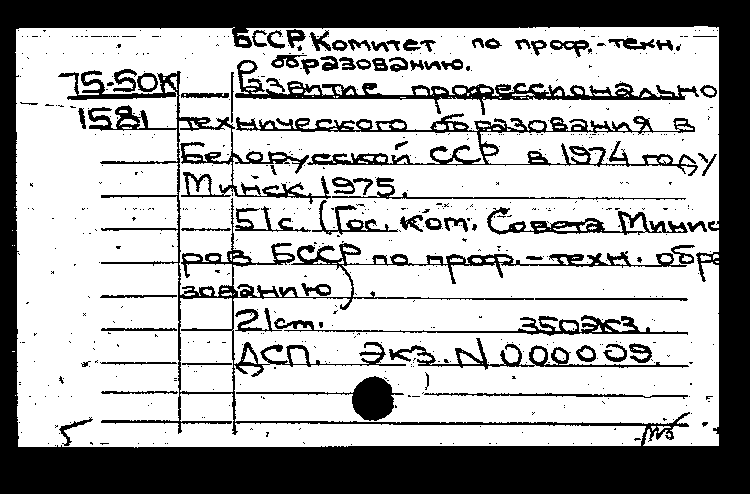 БССР. Комитет по проф.-техн.
образованию.
75-50К Развитие профессионально
1581 технического образования в
Белорусской ССР в 1974 году
Минск, 1975.
51с. (Гос. ком. Совета Минис
ров БССР по проф.-техн. обра
зованию).
21см. 350экз.
ДСП. Экз. N 000009.